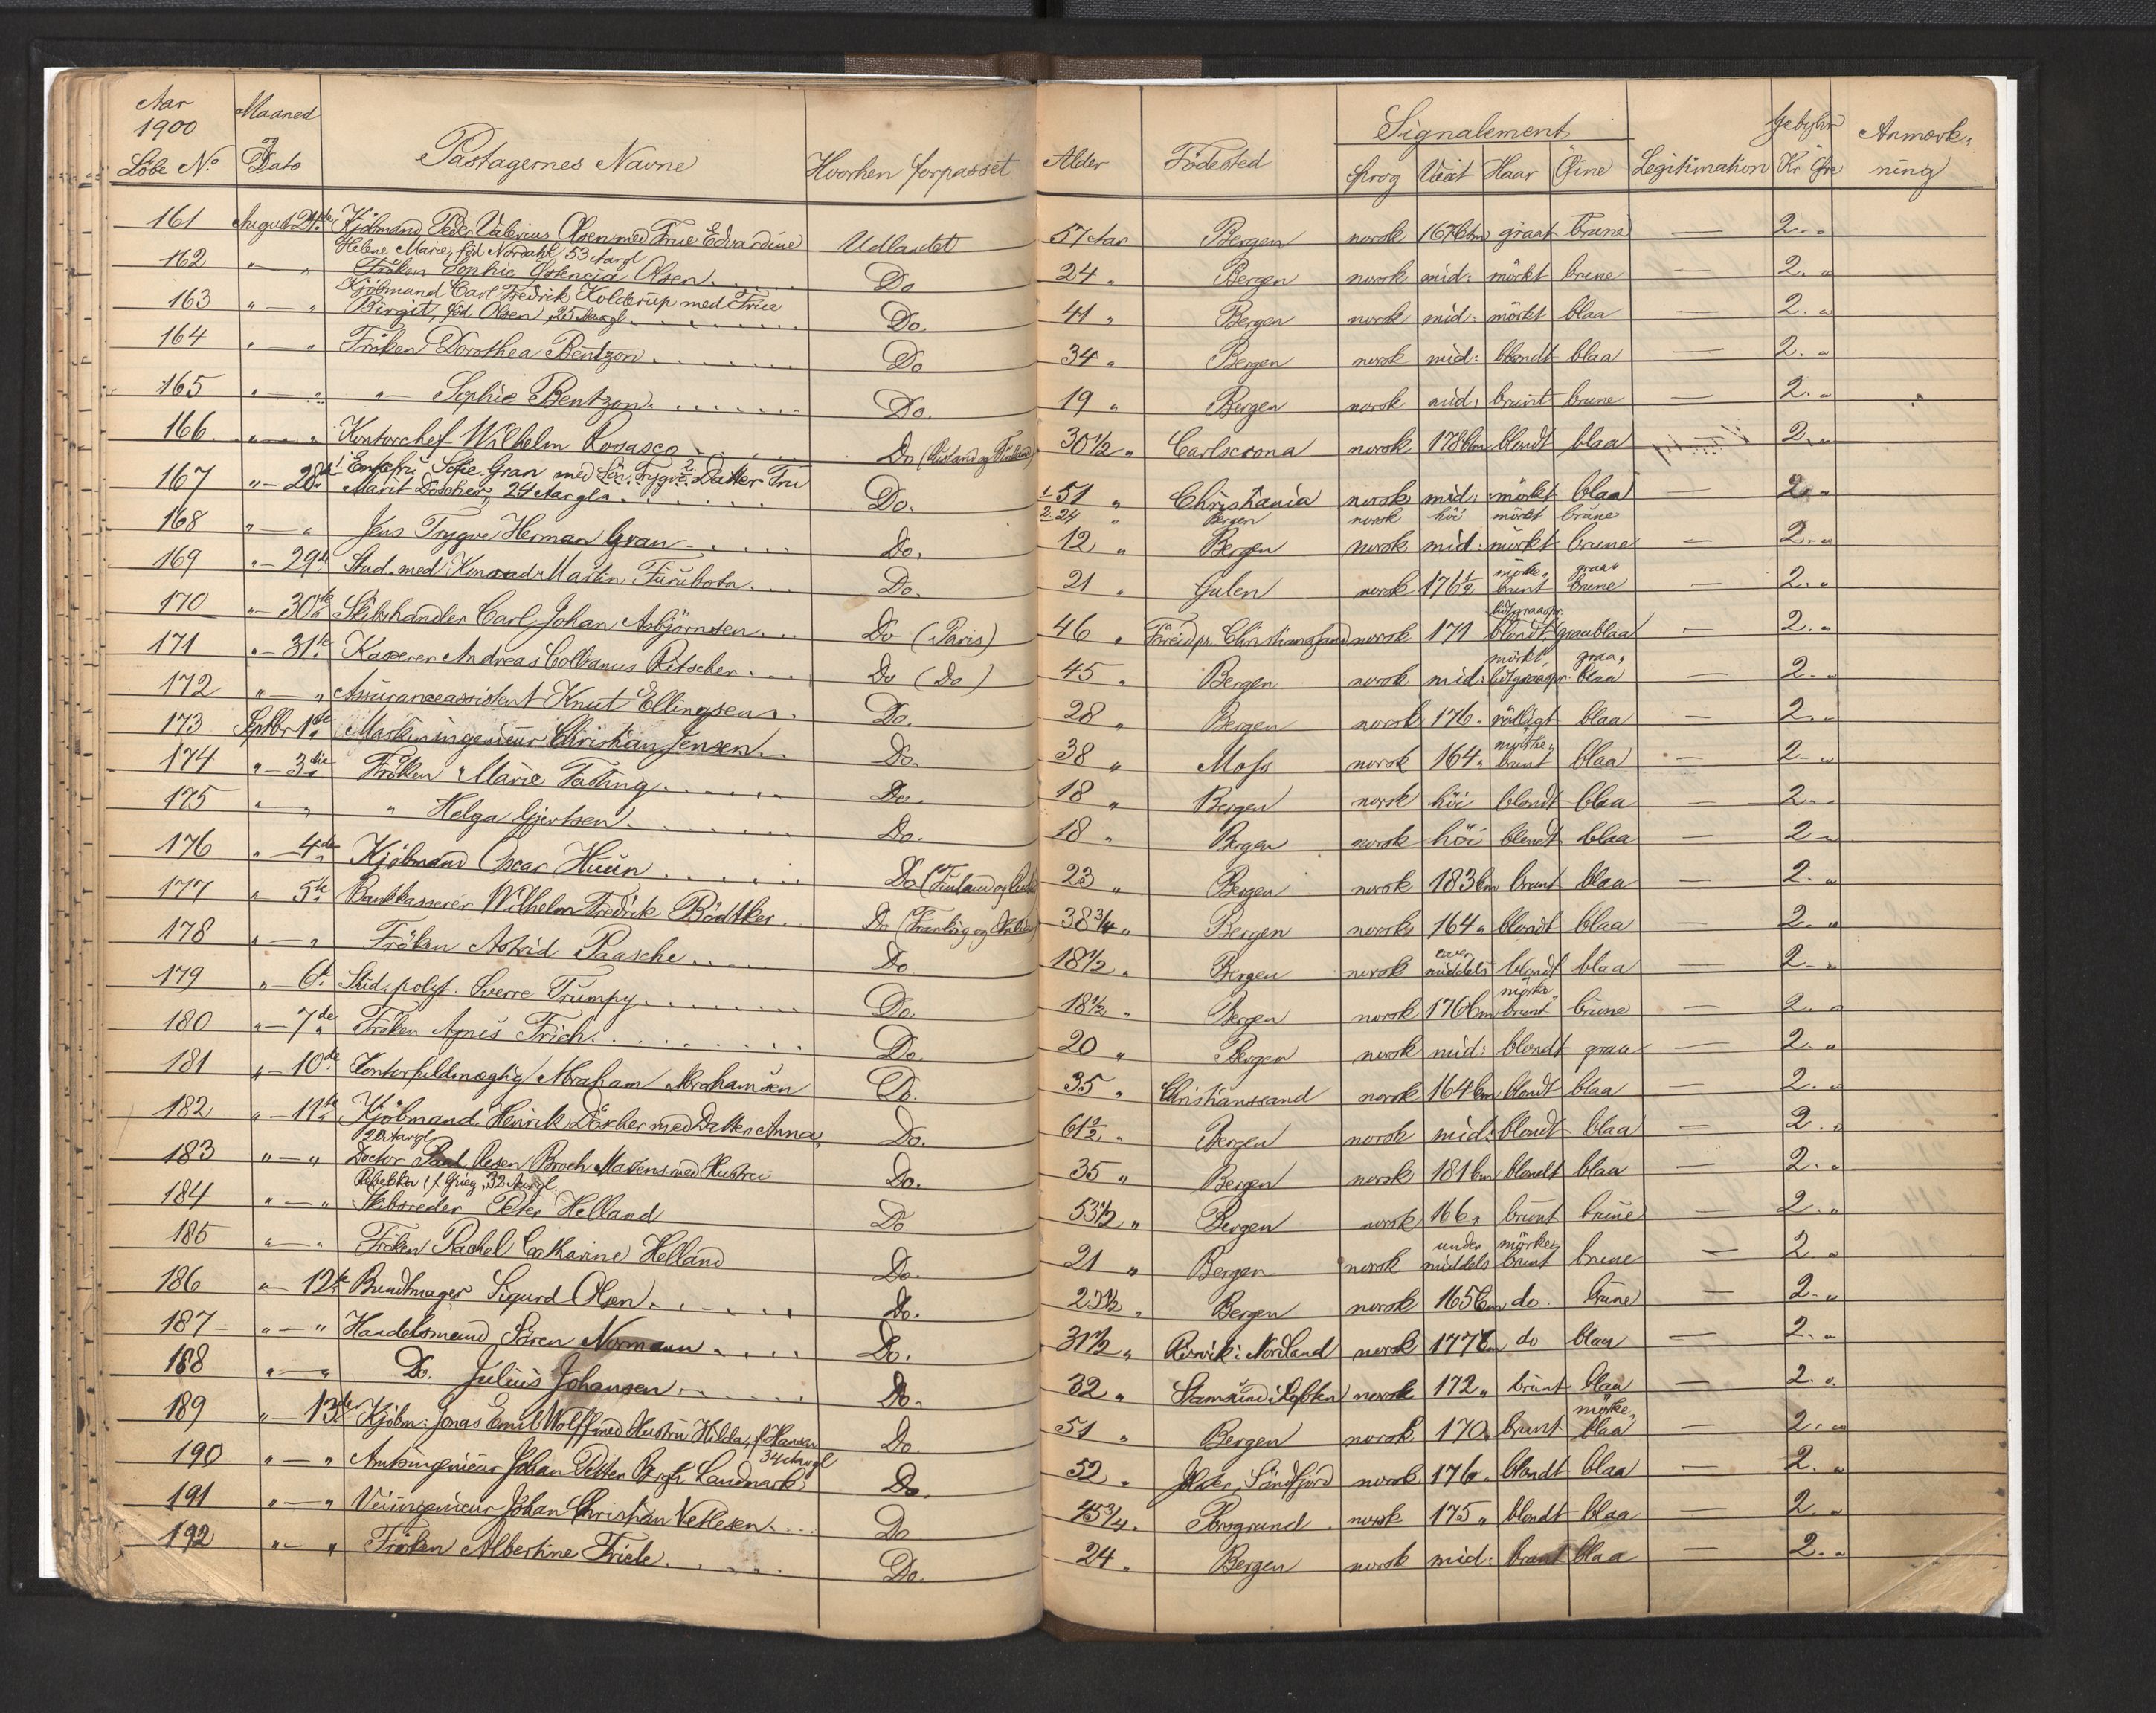 Aar 1900 Löbe No. Maaned og Dato Passagernes Navne Hvorhen forpasset Alder Födested Signalement Sprog Væxt Haar Öine Legitimation Gebyhr Kr Öre Anmærkning
161 August 24de Kjöbmand Peder Valerius Olsen med Frue Edvardine Udlandet 57 Aar Bergen norsk 167 Ctm graat brune — 2. "
Helene Marie, föd Nordahl 53 Aargl
162 " — " Fröken Sophie Olsen Do 24 " Bergen norsk mid: mörkt brune — 2. "
Kjöbmand Carl Fredrik Kolderup med Frue
163 " — " Birgit, föd Olsen, 25 Aargl Do. 41 " Bergen norsk mid: mörkt blaa — 2. "
164 " — " Fröken Dorothea Bentzon Do 34 " Bergen norsk mid: blondt blaa — 2. "
165 " — " " — Sophie Bentzon Do. 19 " Bergen norsk mid: brunt brune — 2. "
166 " — " Kontorchef Wilhelm Rovasco Do (Rusland og Finland) 30 1/2 " Carlscrona norsk 178 Ctm blondt blaa 2. "
167 " — 28de 1 Enkefru Sofie Gran med Sön Trygve 2 Datter Fru Do. 1. 51 " Christiania norsk mid: mörkt blaa — 2. "
Marit Döscher, 24 Aargl. 2. 24 " Bergen norsk höi mörkt brune
168 " — " Jens Trygve Herman Gran Do. 12 " Bergen norsk mid: mörkt brune — 2. "
169 " — 29de Stud. med. Konrad Martin Furubotn Do. 21 " Gulen norsk 176 1/2 mörke, brunt graa, brune — 2. "
170 " — 30te Skibshandler Carl Johan Asbjörnsen Do (Paris) 46 " pr. Christiansand norsk 171 blondt lidt graaspr. graablaa — 2. "
171 " — 31te Kasserer Andreas Colbanus Ritscher Do (Do) 45 " Bergen norsk mid: mörkt, lidt graaspr. graa, blaa — 2. "
172 " — " Assuranceassistent Knut Ellingsen Do. 28 " Bergen norsk 176 " rölligt blaa — 2. "
173 Septbr 1ste Maskiningenieur Christian Jensen Do. 38 " Moss norsk 164 " mörke, brunt blaa — 2 "
174 " — 3die Fröken Marie Fasting Do. 18 " Bergen norsk höi blondt blaa — 2 "
175 " — " " Helga Gjertsen Do. 18 " Bergen norsk höi blondt blaa — 2 "
176 " — 4de Kjöbmand Oscar Huun Do (Finland og 23 " Bergen norsk 183 Ctm brunt blaa — 2. "
177 " — 5te Bankkasserer Wilhelm Fredrik Bödtker Do (Frankrig og Italien) 38 3/4 " Bergen norsk 164 " blondt blaa — 2. "
178 " — " Fröken Astrid Paasche Do 18 1/2 " Bergen norsk over middels blondt blaa — 2 "
179 " — 6te Stud. polyt. Sverre Trumpy Do. 18 1/2 " Bergen norsk 176 Ctm mörke, brunt brune — 2. "
180 " — 7de Fröken Agnes Frich Do. 20 " Bergen norsk mid: blondt graa — 2. "
181 " — 10de Kontorfuldmægtig Abraham Abrahamsen Do. 35 " Christianssand norsk 164 Ctm blondt blaa — 2. "
182 " — 11te Kjöbmand Henrik Döscher med Datter Anna, Do. 61 1/2 " Bergen norsk mid: blondt blaa — 2. "
20 Aargl
183 " — " Doctor Paul Resen Broch Martens med Hustru Do. 35 " Bergen norsk 181 Ctm blondt blaa — 2. "
Rebekka, f. Grieg, 32 Aargl.
184 " — " Skibsreder Peter Helland Do. 53 1/2 " Bergen norsk 166 " brunt brune — 2. "
185 " — " Fröken Rachel Catharine Helland Do. 21 " Bergen norsk under middels mörke, brunt brune — 2 "
186 " — 12te Bundtmager Sigurd Olsen Do. 23 1/2 " Bergen norsk 165 Ctm do. brune — 2. "
187 " — " Handelsmand Sören Normann Do. 31 1/2 " i Nordland norsk 177 Ctm do blaa — 2. "
188 " — " Do. Julius Johansen Do. 32 " Stamsund i Lofoten norsk 172 " brunt blaa 2. "
189 " — 13de Kjöbm: Jonas Emil Wolff med Hustru Hilda, f. Hansen Do. 51 " Bergen norsk 170 " brunt mörke, blaa — 2. "
34 Aargl
190 " — " Amtsingenieur Johan Petter Krogh Landmark Do. 52 " Jölster, Söndfjord norsk 176 " blondt blaa — 2. "
191 " — " Veiingenieur Johan Christian Vetlesen Do 45 3/4 " Porsgrund norsk 175 " blondt blaa — 2. "
192 " — " Fröken Albertine Friele Do. 24 " Bergen norsk mid: brunt blaa — 2. "